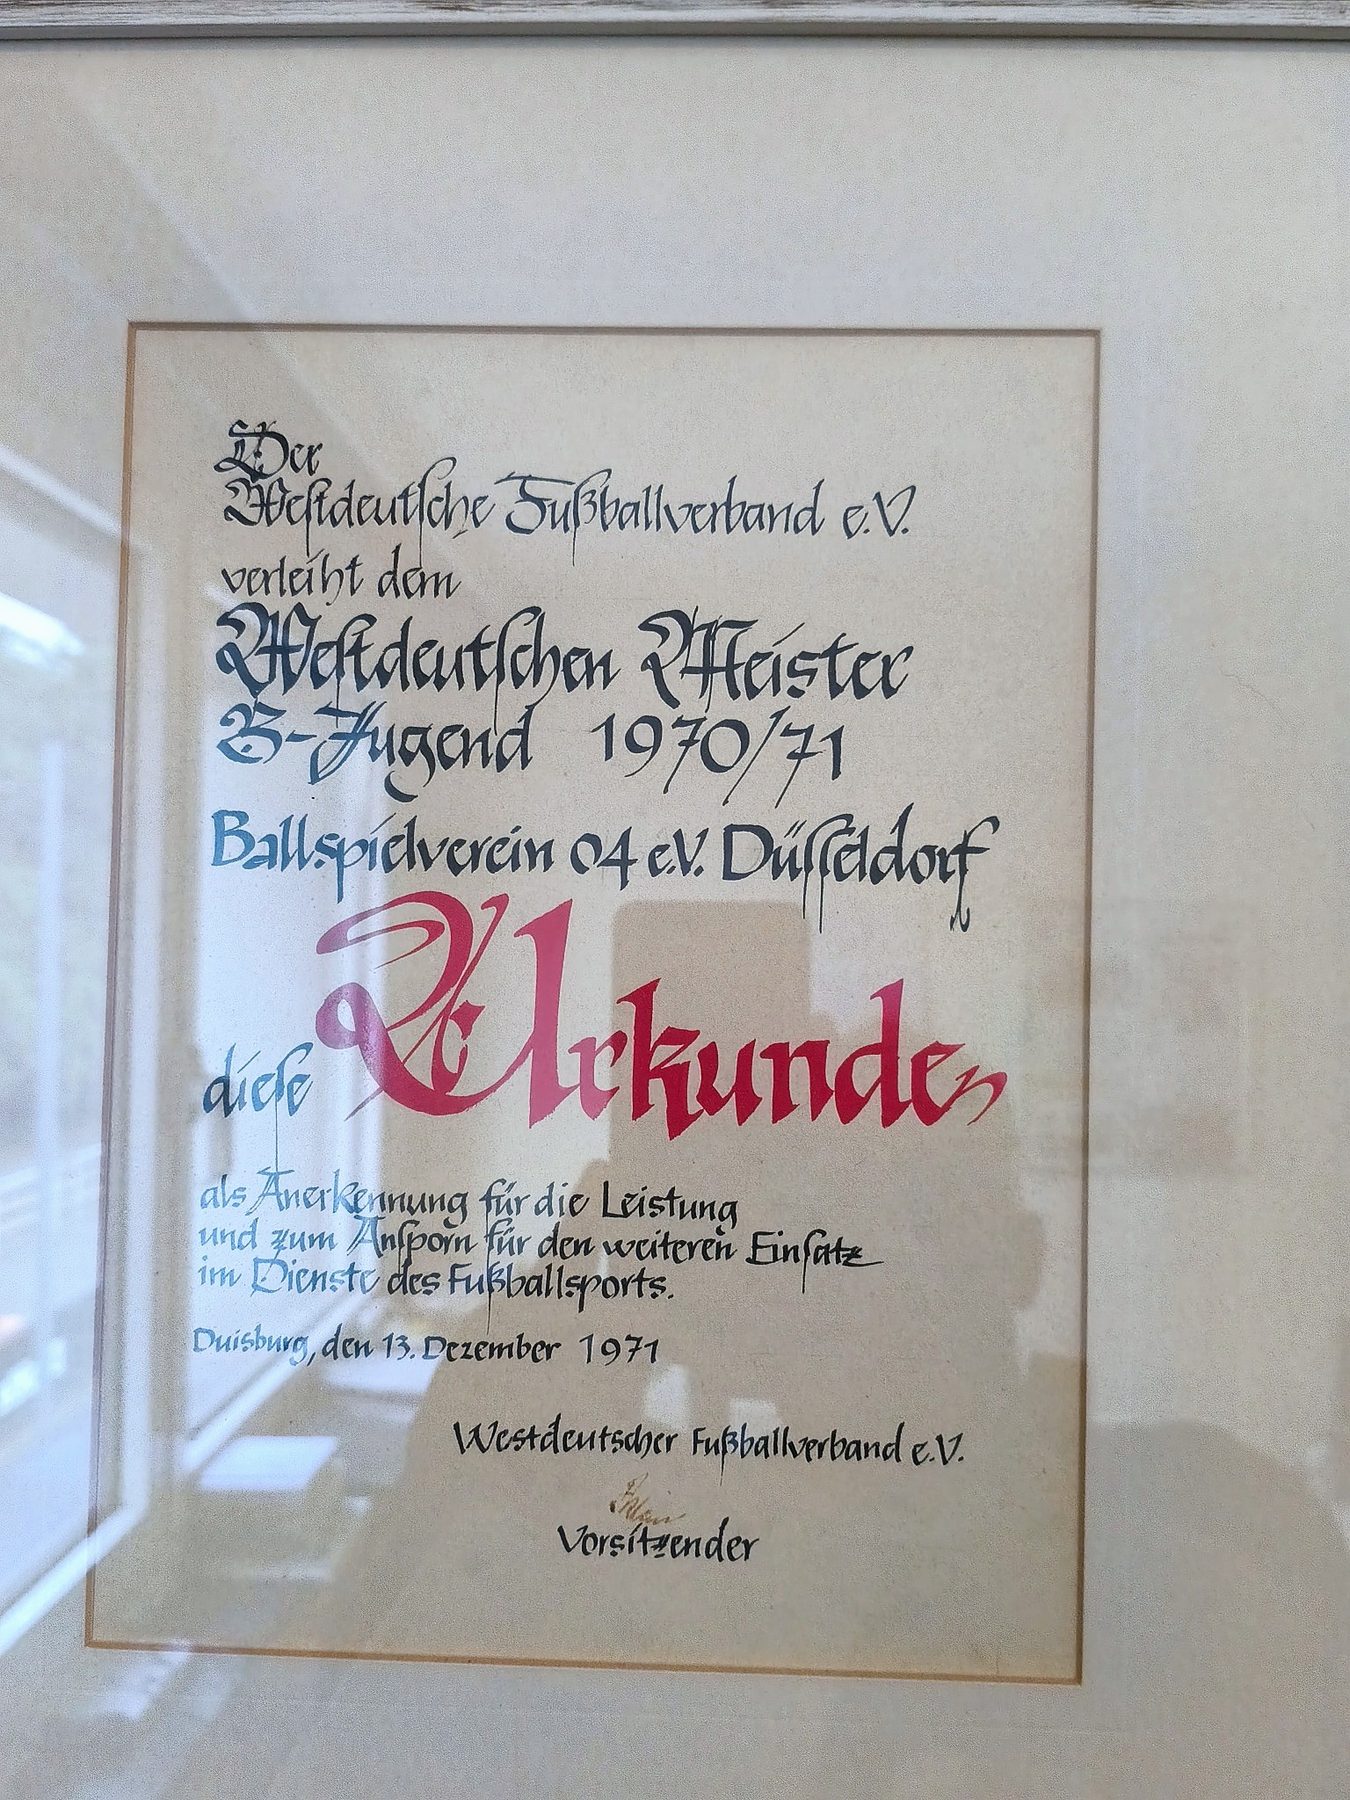 Der
Westdeutsche Fußballverband e.V.
verleiht dem
Westdeutschen Meister
B-Jugend 1970/71
Ballspielverein 04 e.V. Düsseldorf
diese Urkunde
als Anerkennung für die Leistung
und zum Ansporn für den weiteren Einsatz
im Dienste des Fußballsports.
Duisburg, den 13. Dezember 1971
Westdeutscher Fußballverband e.V.
Vorsitzender